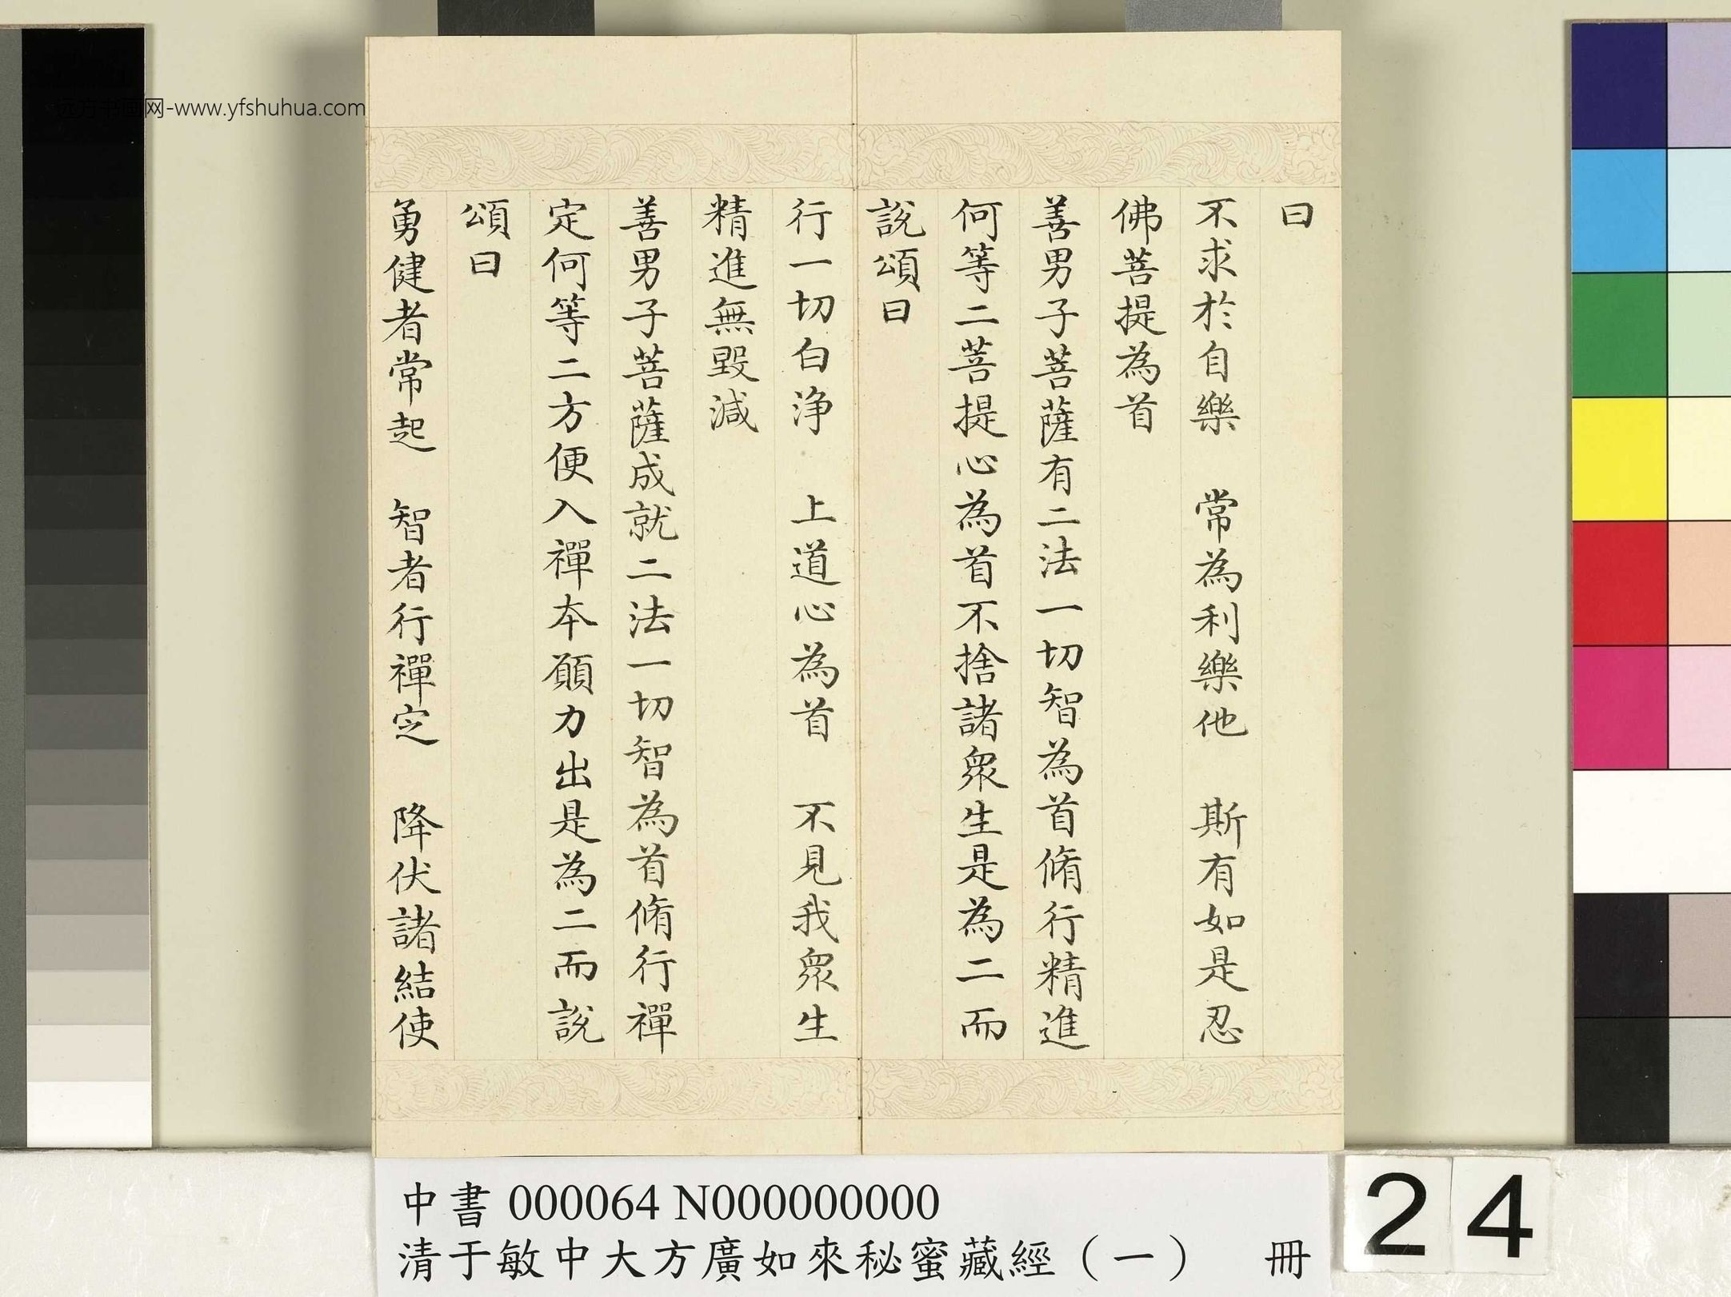 曰
不求於自樂　常為利樂他　斯有如是忍
佛菩提為首
善男子菩薩有二法一切智為首脩行精進
何等二菩提心為首不捨諸衆生是為二而
說頌曰
行一切白浄　上道心為首　不見我衆生
精進無毀減
善男子菩薩成就二法一切智為首脩行禪
定何等二方便入禪本願力出是為二而說
頌曰
勇健者常起　智者行禪定　降伏諸結使
中書 000064 N000000000
清于敏中大方廣如來秘蜜藏經（一）　冊
24
远方书画网-www.yfshuhua.com